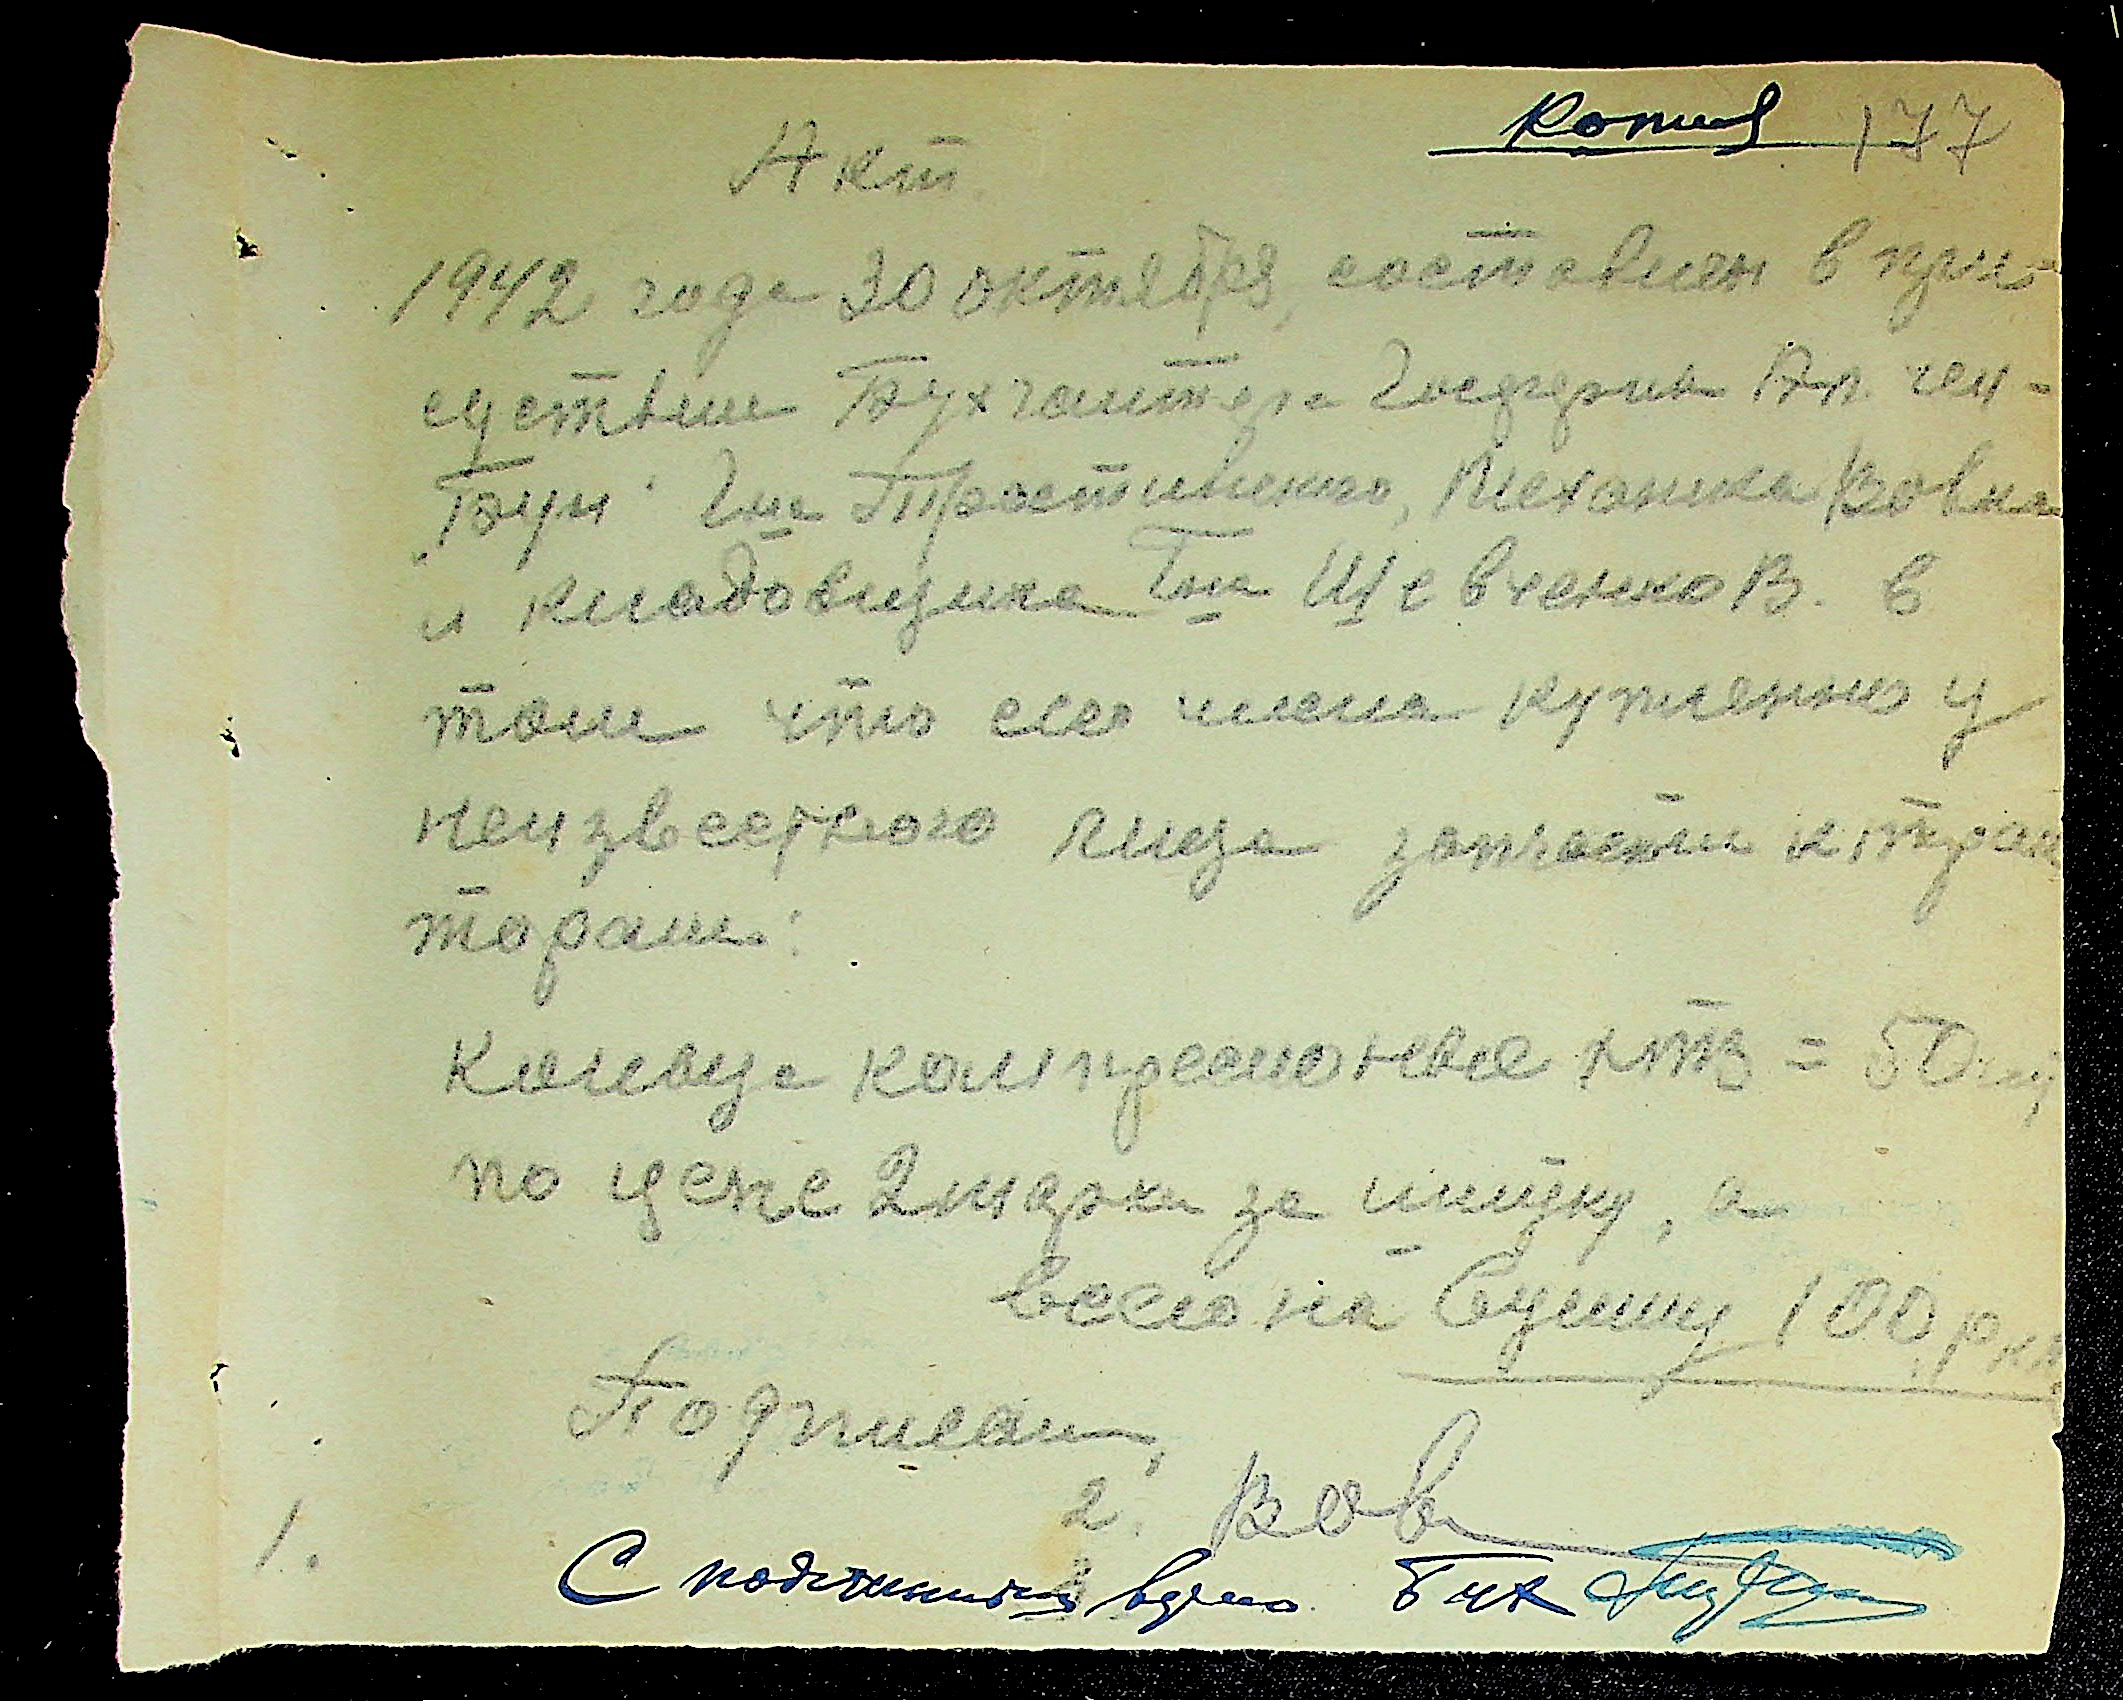 Копия 177
Акт.
1942 года 30 октября, составлен в при-
сутствии Бухгалтера Госдерик
"Бун" Гна Тростинского, Механика Вовка
и кладовщика Гна Шевченко В. в
том что сего числа куплено у
неизвестного лица запчасти к трак
торам:
Кольца компресионные ХТЗ = 50 ш,
по цене 2 марки за штуку, а
всего на сумму 100, ркм
Подписали,
2. Вов
1.
С подлинным верно. Бух